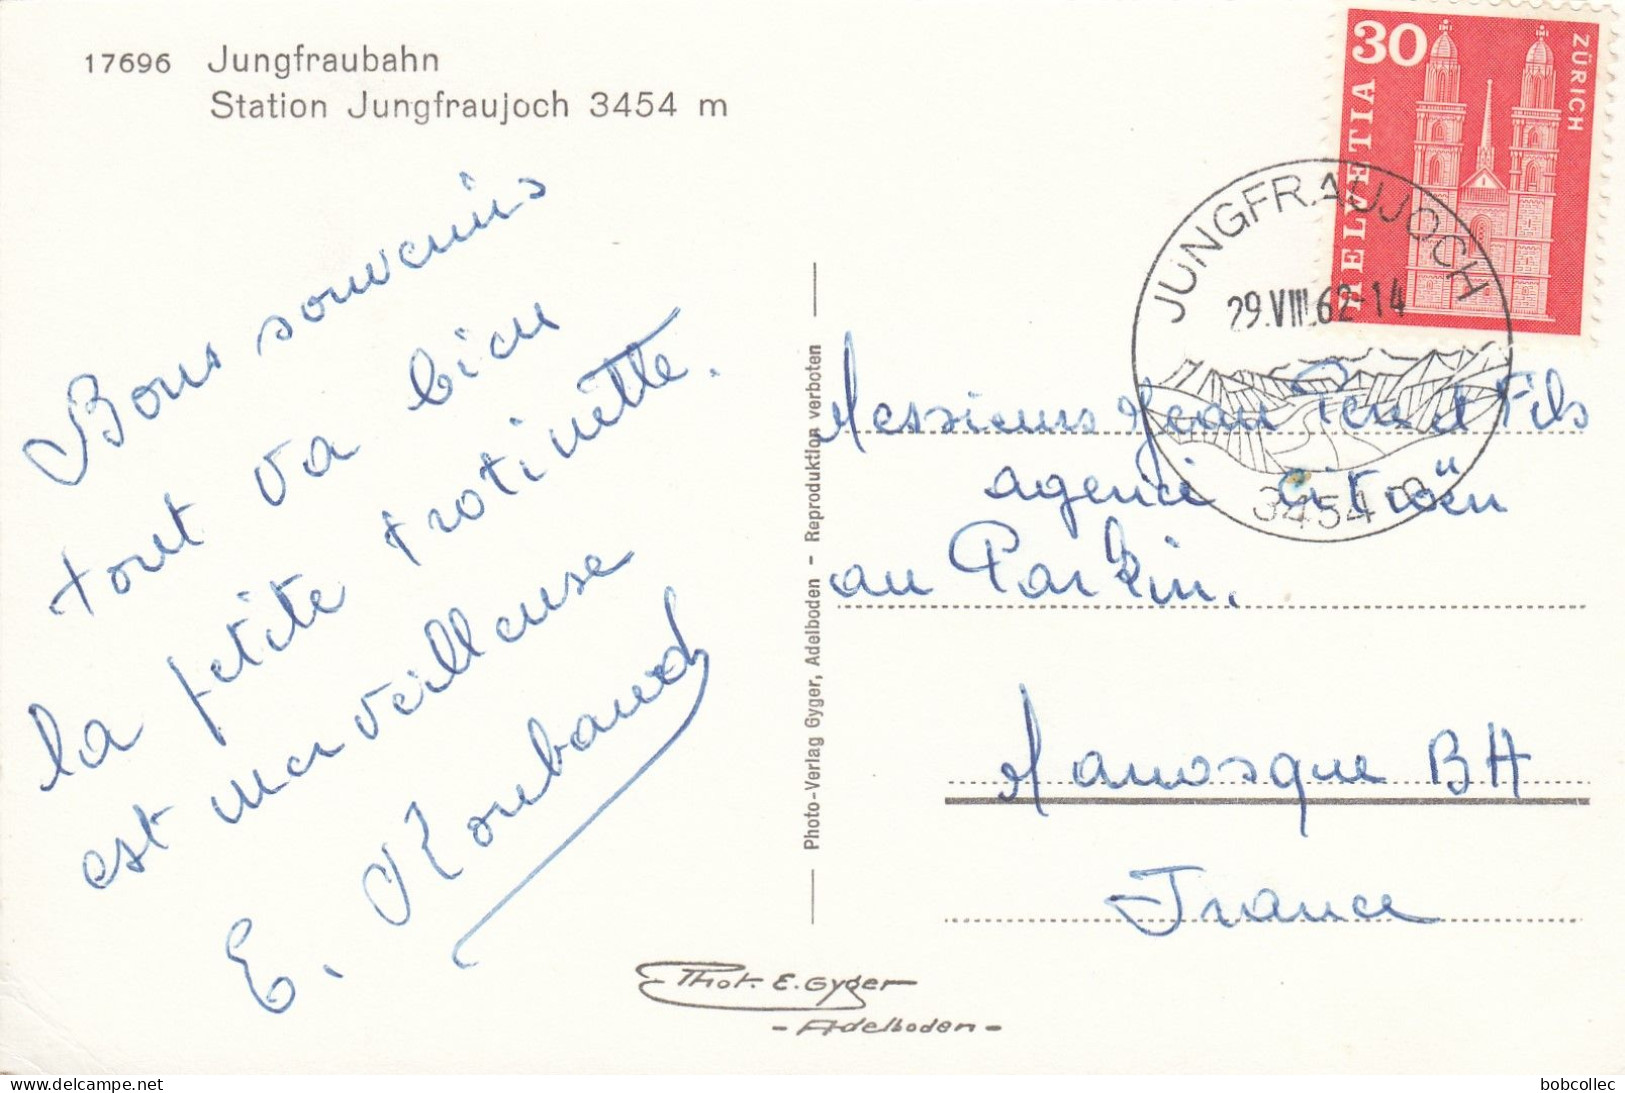 17696 Jungfraubahn
Station Jungfraujoch 3454 m
30
HELVETIA
ZÜRICH
JUNGFRAUJOCH
29.VIII.62-14
3454 m
Bons souvenirs
tout va bien
la petite trotinette.
est merveilleuse
E. Roubaud
Photo-Verlag Gyger, Adelboden - Reproduktion verboten
Messieurs Jean Père et Fils
agence Citroën
au Parkin.
Manosque BA
France
Phot. E. Gyger
- Adelboden -
bobcollec